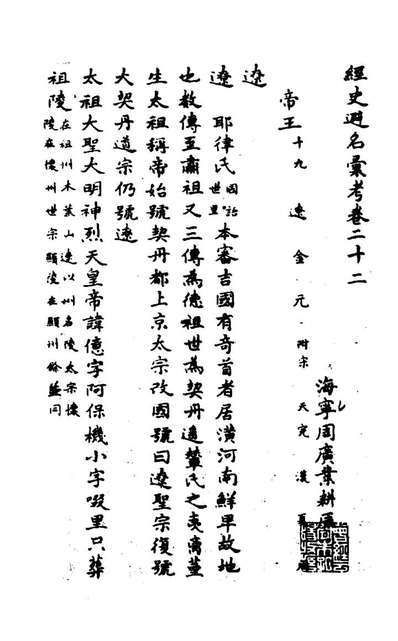 經史避名彙考卷二十二
海寧周廣業耕厓
帝王十九 遼金元 附宗 天完 漢 夏
遼
遼 耶律氏國語世里本審吉國有奇首者居潢河南鮮卑故地
也數傳至肅祖又三傳為德祖世為契丹遙輦氏之夷离堇
生太祖稱帝始號契丹都上京太宗改國號曰遼聖宗復號
大契丹道宗仍號遼
太祖大聖大明神烈天皇帝諱億字阿保機小字啜里只葬
祖陵在祖州木葉山遼以州名陵太宗懷陵在懷州世宗顯陵在顯州餘並同